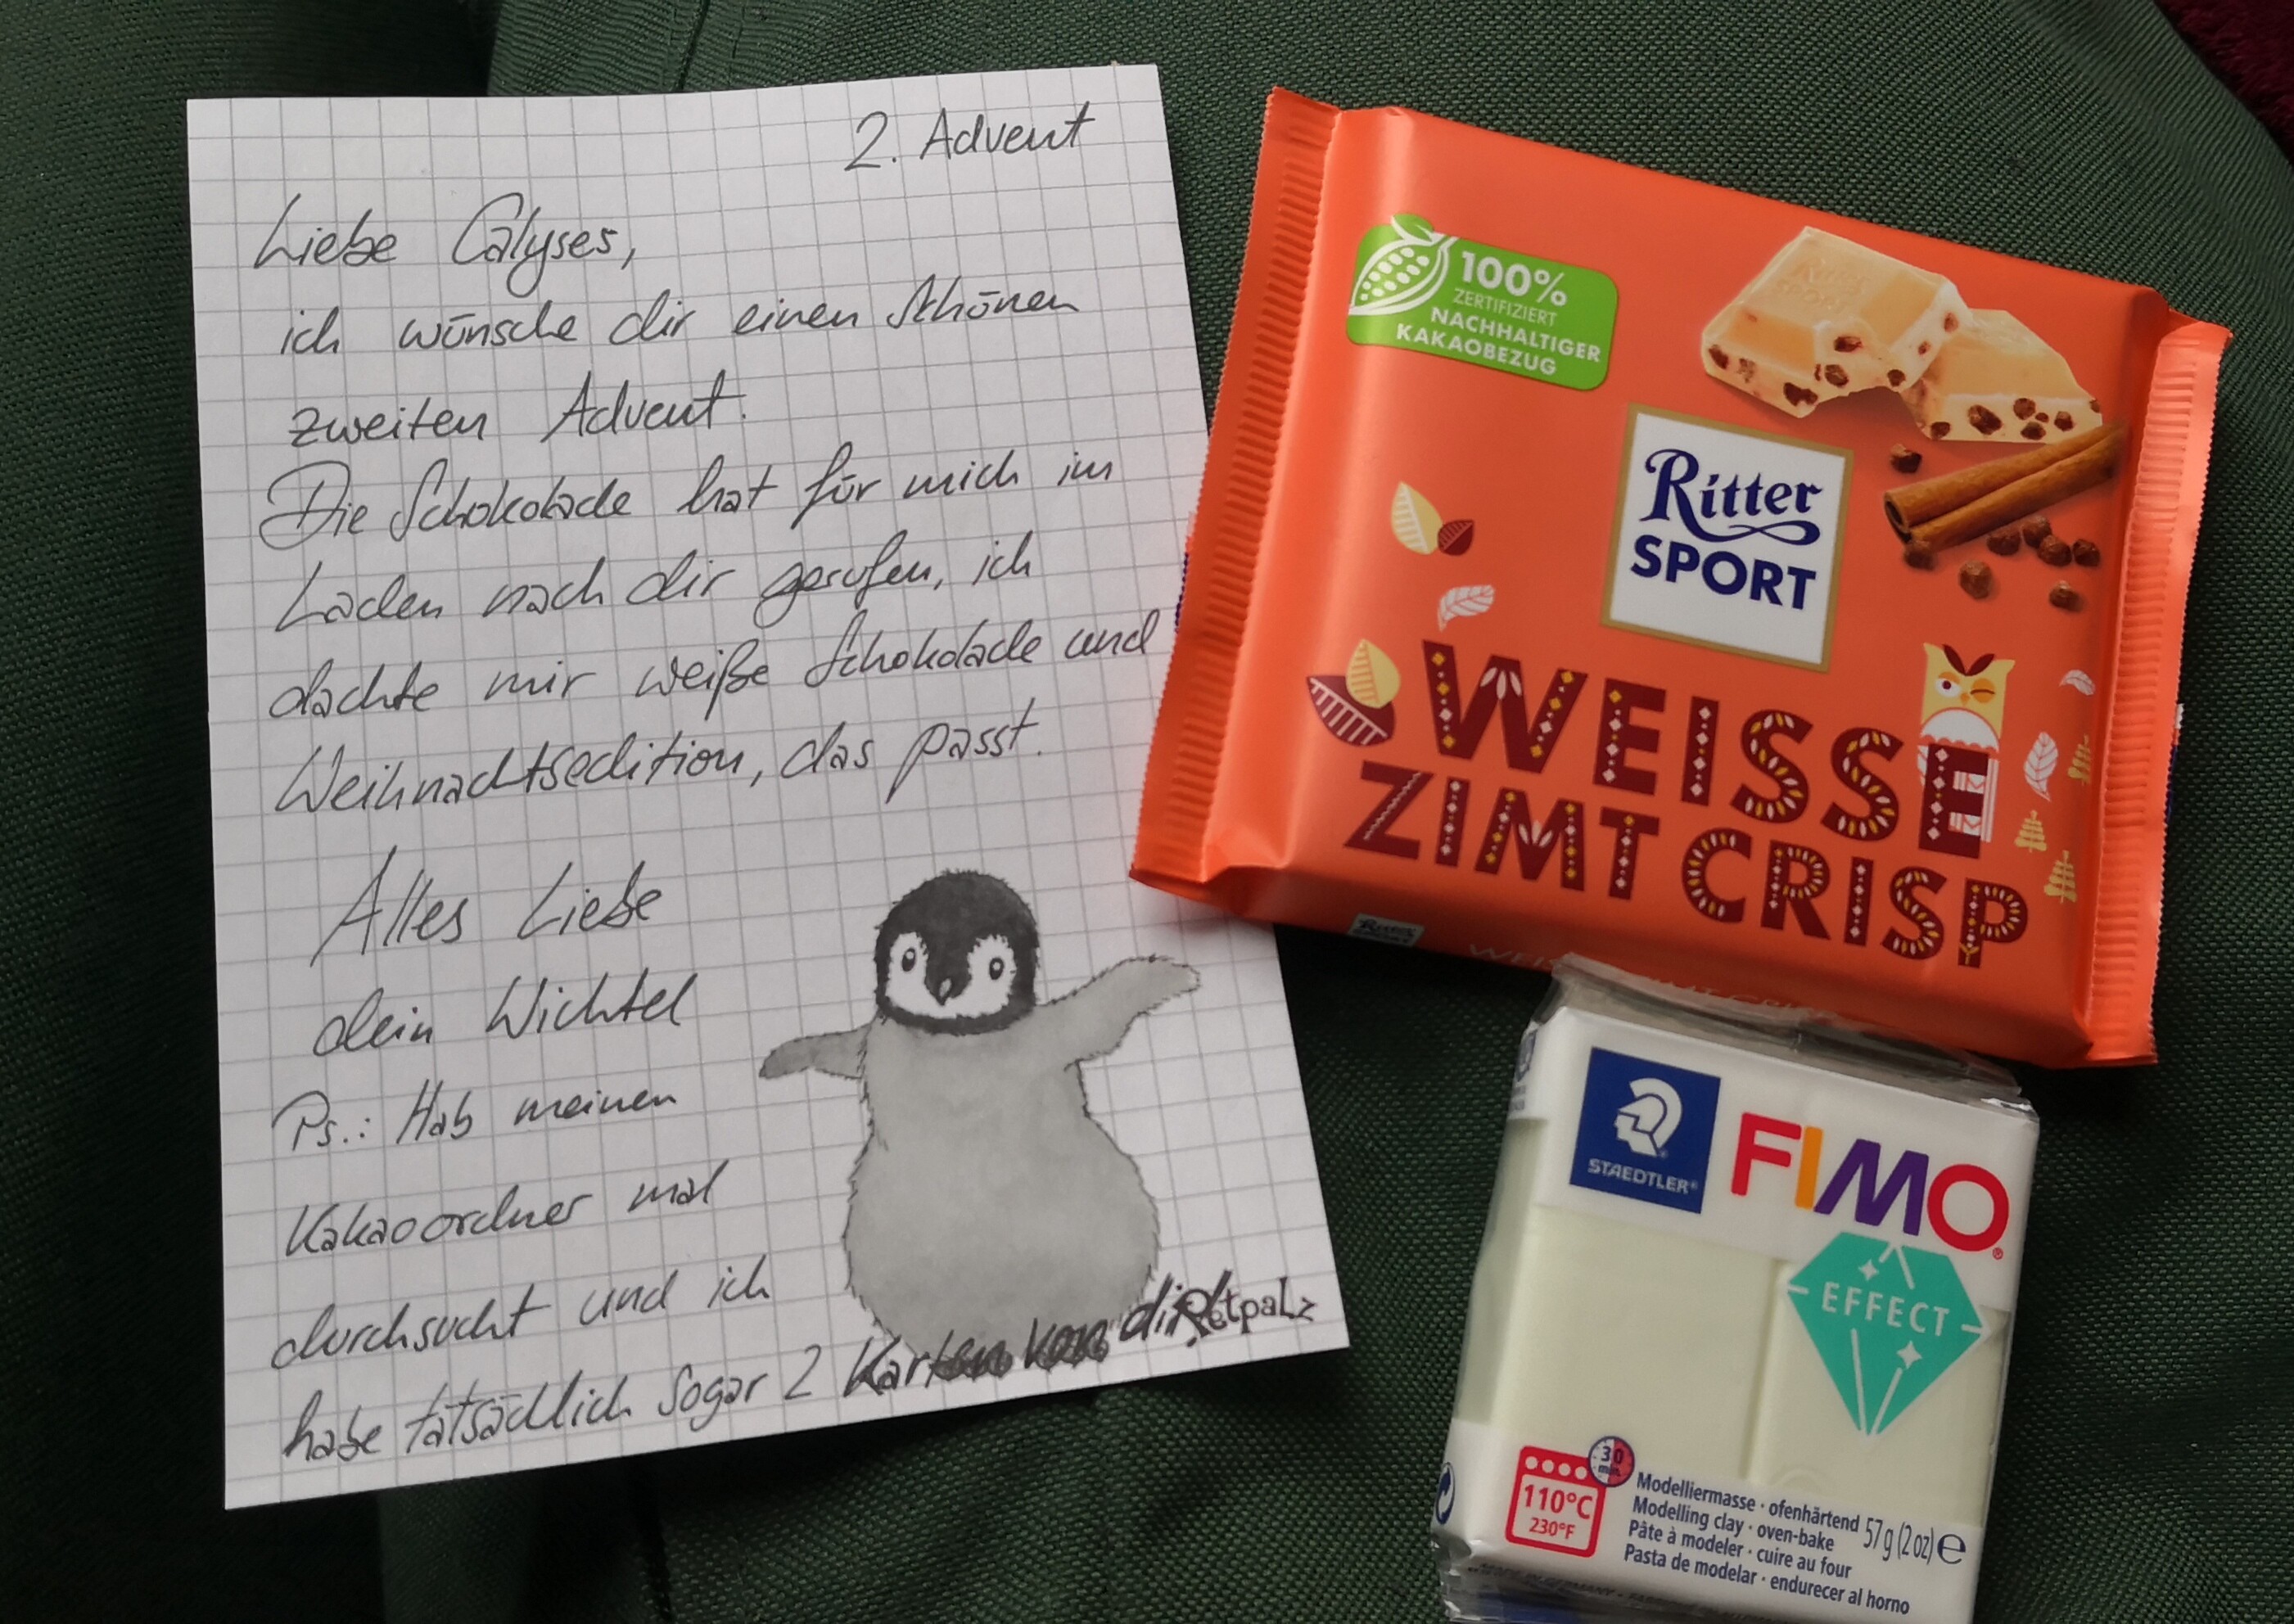 2. Advent
Liebe Calyses,
ich wünsche dir einen schönen
zweiten Advent.
Die Schokolade hat für mich im
Laden nach dir gerufen, ich
dachte mir weiße Schokolade und
Weihnachtsedition, das passt.
Alles Liebe
dein Wichtel
Ps.: Hab meinen
Kakaoordner mal
durchsucht und ich
habe tatsächlich sogar 2 Karten von dir
Petpalz
100%
ZERTIFIZIERT
NACHHALTIGER
KAKAOBEZUG
RITTER
SPORT
Ritter
SPORT
WEISSE
ZIMT CRISP
STAEDTLER®
FIMO®
EFFECT
30
min.
110°C
230°F
Modelliermasse · ofenhärtend
Modelling clay · oven-bake
Pâte à modeler · cuire au four
Pasta de modelar · endurecer al horno
57 g (2 oz) e